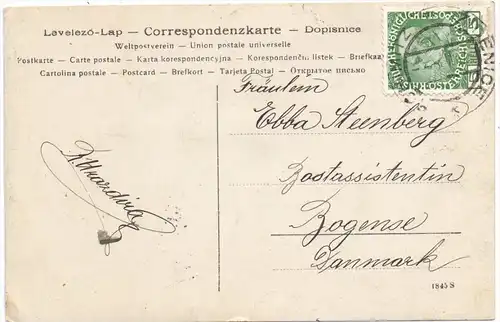 Levelező-Lap — Correspondenzkarte — Dopisnice
Weltpostverein — Union postale universelle
Postkarte — Carte postale — Karta korespondencyjna — Korespondenční lístek — Briefkaa
Cartolina postale — Postcard — Brefkort — Tarjeta Postal — Открытое письмо
Fräulein
Ebba Steenberg
Postassistentin
Bogense
Danmark
1845 S